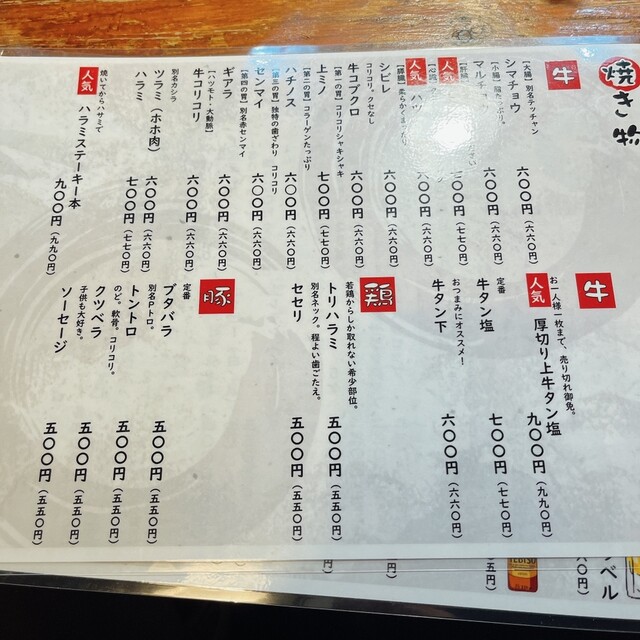 焼き物
牛
【大腸】別名テッチャン
シマチョウ 六〇〇円（六六〇円）
【小腸】
マルチョウ 六〇〇円（六六〇円）
人気
七〇〇円（七七〇円）
人気
六〇〇円（六六〇円）
シビレ 六〇〇円（六六〇円）
コリコリ。クセなし
牛コブクロ 六〇〇円（六六〇円）
【第一の胃】コリコリシャキシャキ
上ミノ 七〇〇円（七七〇円）
【第二の胃】コラーゲンたっぷり
ハチノス 六〇〇円（六六〇円）
【第三の胃】独特の歯ざわり コリコリ
センマイ 六〇〇円（六六〇円）
【第四の胃】別名赤センマイ
ギアラ 六〇〇円（六六〇円）
【ハツモト・大動脈】
牛コリコリ 六〇〇円（六六〇円）
別名カシラ
ツラミ（ホホ肉） 六〇〇円（六六〇円）
ハラミ 七〇〇円（七七〇円）
焼いてからハサミで
人気 ハラミステーキ一本 九〇〇円（九九〇円）
牛
お一人様一枚まで、売り切れ御免。
人気 厚切り上牛タン塩 九〇〇円（九九〇円）
定番
牛タン塩 七〇〇円（七七〇円）
おつまみにオススメ！
牛タン下 六〇〇円（六六〇円）
鶏
若鶏からしか取れない希少部位。
トリハラミ 五〇〇円（五五〇円）
別名ネック。程よい歯ごたえ。
セセリ 五〇〇円（五五〇円）
豚
定番
ブタバラ 五〇〇円（五五〇円）
別名Pトロ。
トントロ 五〇〇円（五五〇円）
のど。軟骨。コリコリ。
クツベラ 五〇〇円（五五〇円）
子供も大好き。
ソーセージ 五〇〇円（五五〇円）
ベル